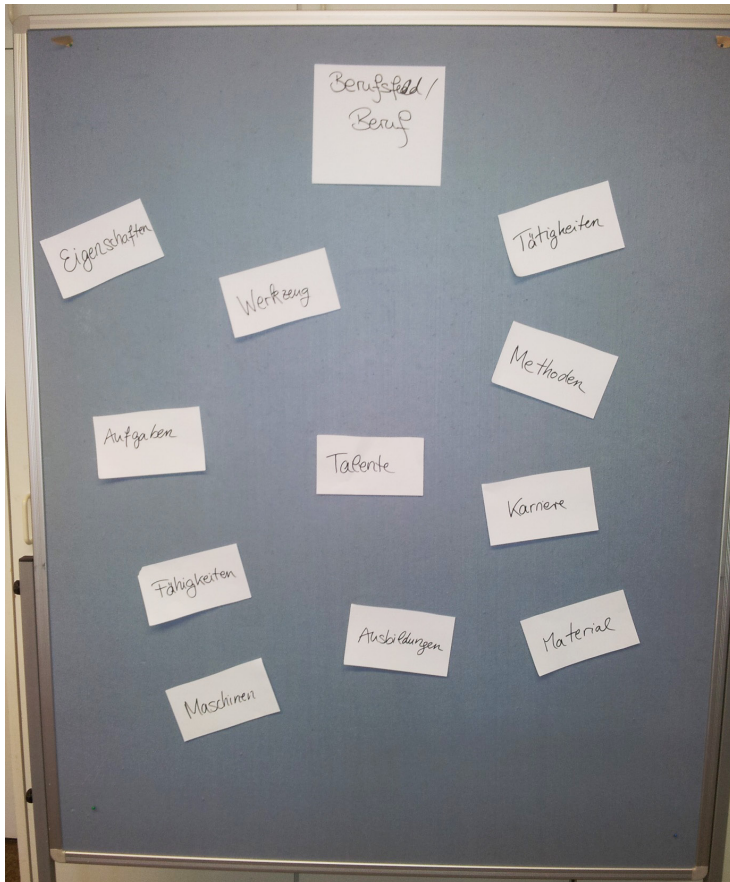 Berufsfeld/
Beruf
Eigenschaften
Tätigkeiten
Werkzeug
Methoden
Aufgaben
Talente
Karriere
Fähigkeiten
Ausbildungen
Material
Maschinen